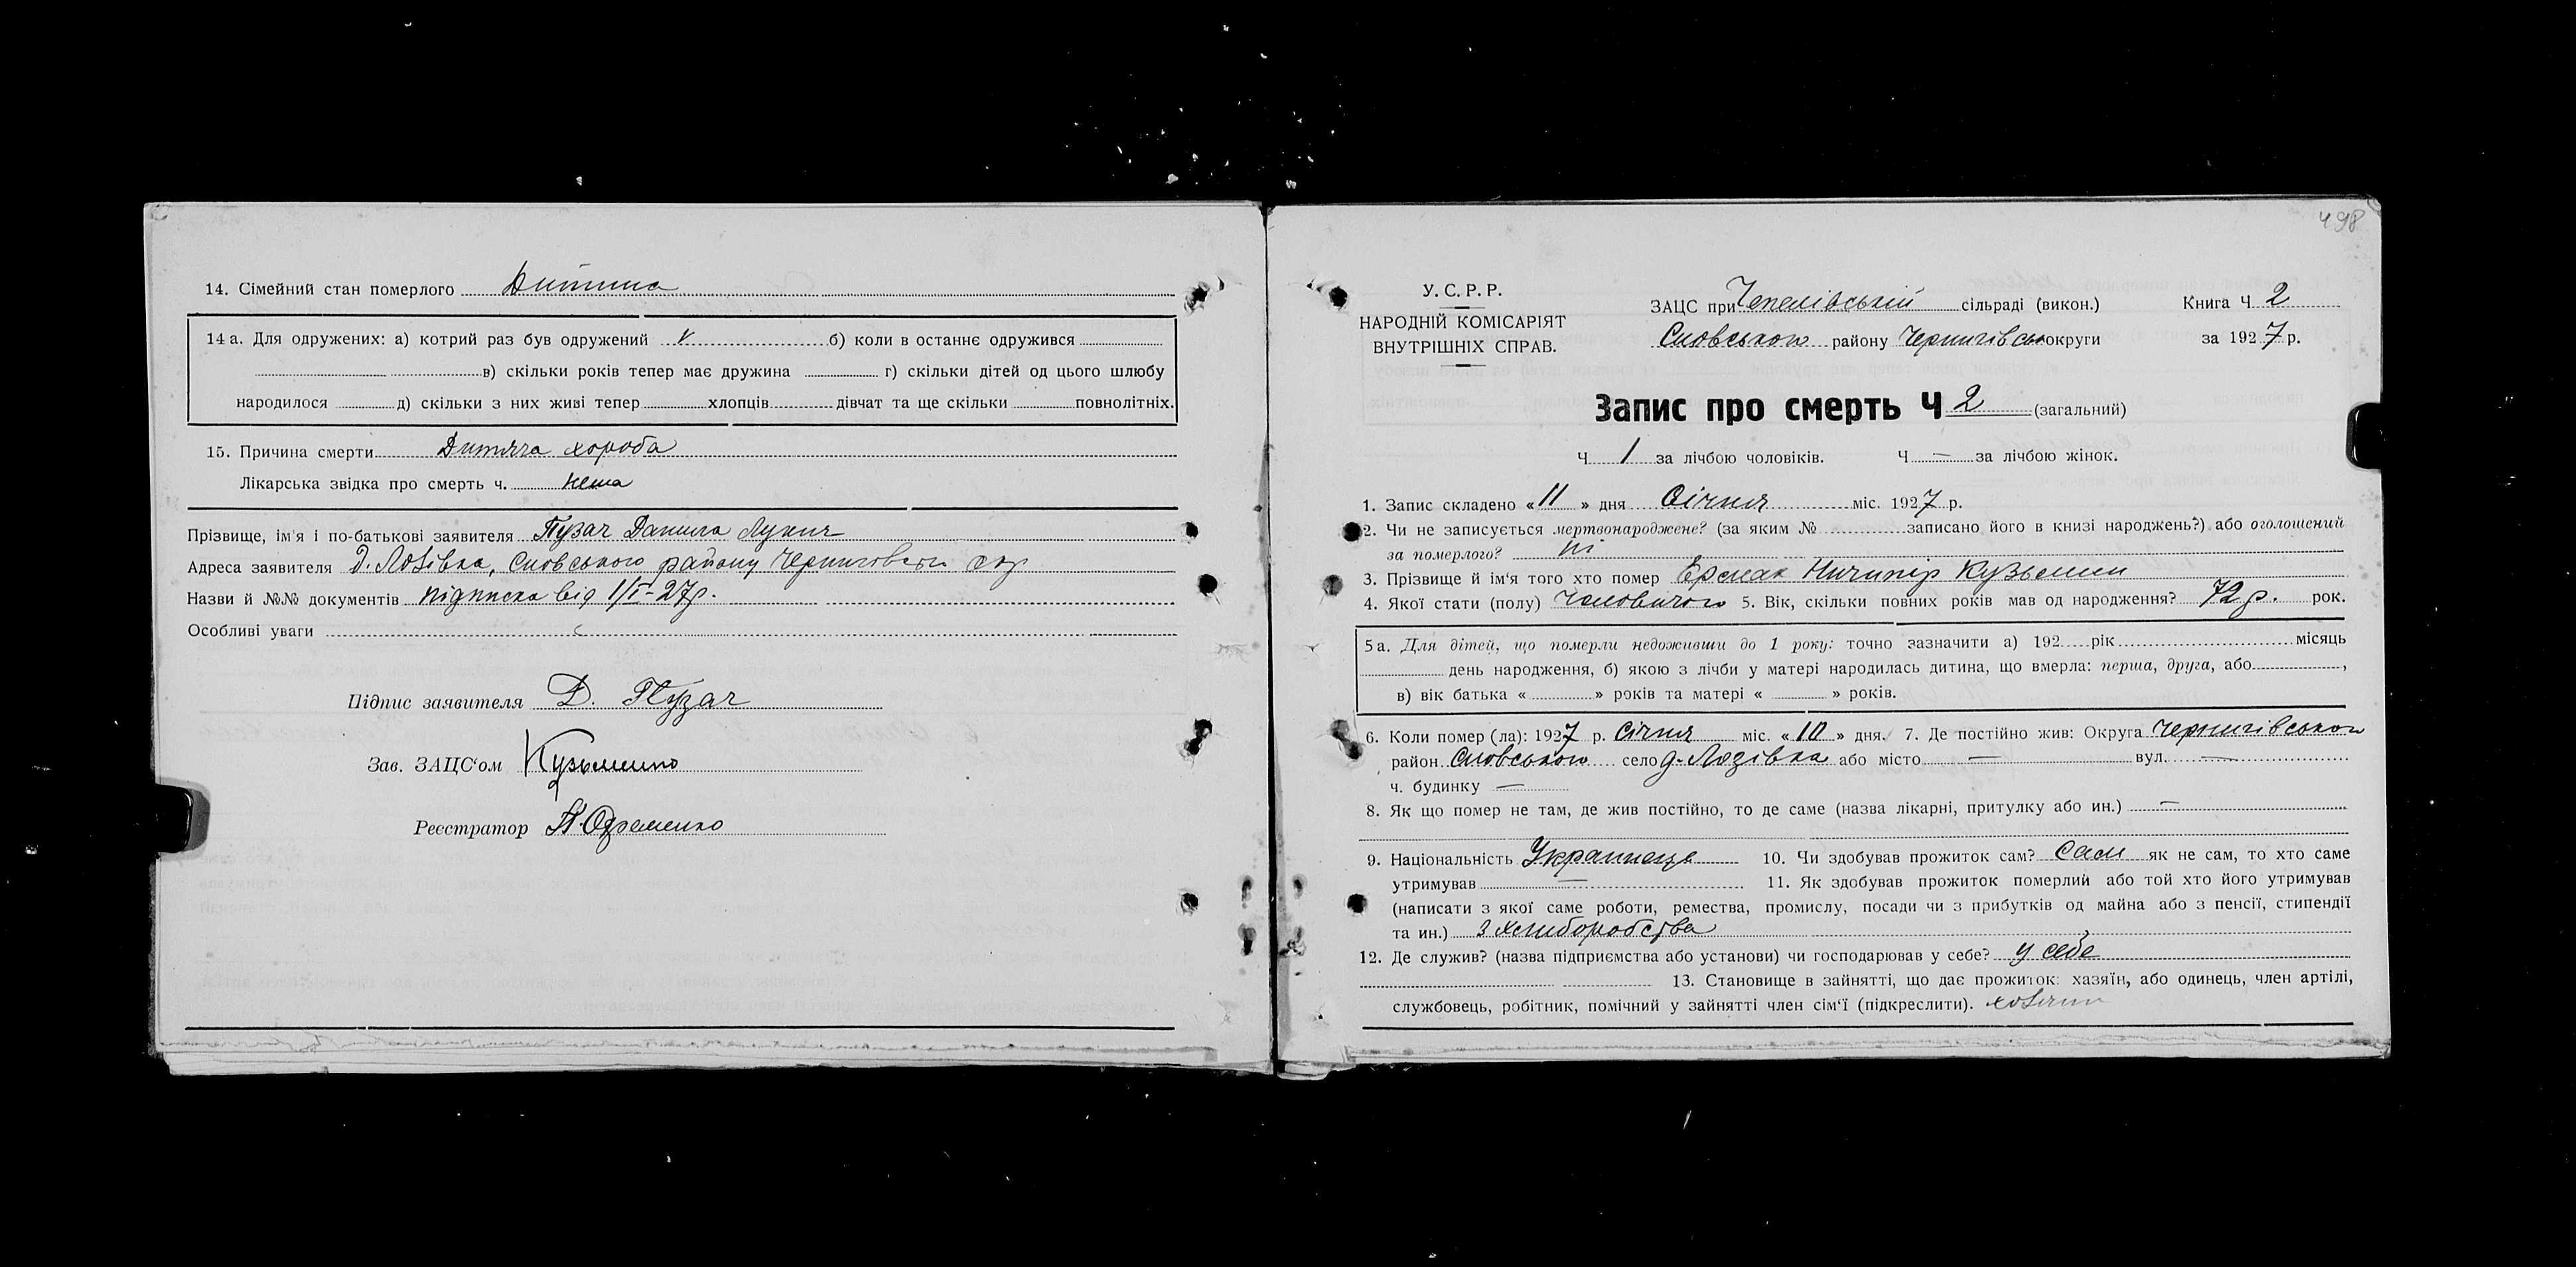 14. Сімейний стан померлого Дитина
14 а. Для одружених: а) котрий раз був одружений v б) коли в останнє одружився
в) скільки років тепер має дружина г) скільки дітей од цього шлюбу
народилося д) скільки з них живі тепер хлопців дівчат та ще скільки повнолітніх.
15. Причина смерти Дитяча хороба
Лікарська звідка про смерть ч. нема
Прізвище, ім'я і по-батькові заявителя Пузач Данила Лукич
Адреса заявителя д. Лозівка, Сновського району Чернигівськ окр
Назви й №№ документів підписка від 1/I-27р.
Особливі уваги
Підпис заявителя Д. Пузач
Зав. ЗАЦС'ом Кузьменко
Реєстратор
498
У. С. Р. Р.
НАРОДНІЙ КОМІСАРІЯТ
ВНУТРІШНІХ СПРАВ.
ЗАЦС при Чепелівській сільраді (викон.) Книга Ч 2
Сновського району Чернигівськ округи за 1927 р.
Запис про смерть Ч 2 (загальний)
Ч 1 за лічбою чоловіків. Ч — за лічбою жінок.
1. Запис складено « 11 » дня Січня міс. 1927 р.
2. Чи не записується мертвонароджене? (за яким № записано його в книзі народжень?) або оголошений
за померлого? ні
3. Прізвище й ім'я того хто померКузьмич Єрмак Ничипір Кузьмич
4. Якої стати (полу) Чоловичого 5. Вік, скільки повних років мав од народження? 72 р. рок.
5 а. Для дітей, що померли недоживши до 1 року: точно зазначити а) 192 рік місяць
день народження, б) якою з лічби у матері народилась дитина, що вмерла: перша, друга, або ,
в) вік батька « » років та матері « » років.
6. Коли помер (ла): 1927 р. Січня міс. « 10 » дня. 7. Де постійно жив: Округа Чернигівської
район Сновського село д. Лозівка або місто — вул. —
ч. будинку —
8. Як що помер не там, де жив постійно, то де саме (назва лікарні, притулку або ин.) —
9. Національність Українець 10. Чи здобував прожиток сам? Сам як не сам, то хто саме
утримував — 11. Як здобував прожиток померлий або той хто його утримував
(написати з якої саме роботи, ремества, промислу, посади чи з прибутків од майна або з пенсії, стипендії
та ин.) з Хлиборобства
12. Де служив? (назва підприємства або установи) чи господарював у себе? у себе
13. Становище в зайнятті, що дає прожиток: хазяїн, або одинець, член артілі,
службовець, робітник, помічний у зайнятті член сім'ї (підкреслити). хозяин